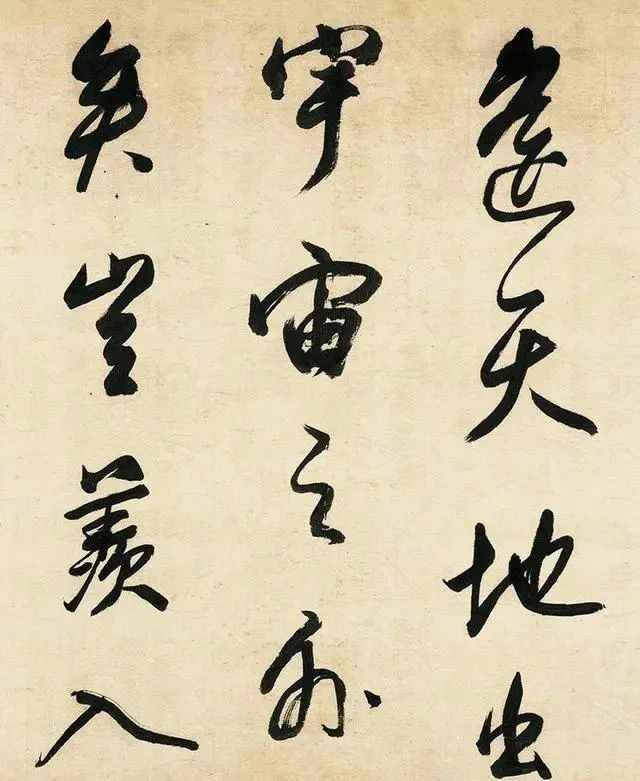 天地出
宇宙之外
矣豈羨入